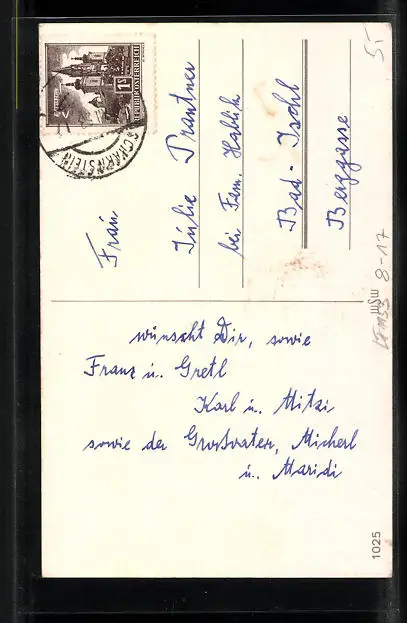 1 S
REPUBLIK ÖSTERREICH
SCHARNSTEIN
Frau
Julie Prantner
bei Fam. Hablik
Bad-Ischl
Berggasse
wünscht Dir, sowie
Franz u. Gretl
Karl u. Mitzi
sowie der Großvater, Micherl
u. Maridi
5.-
8-17
MSM
1025